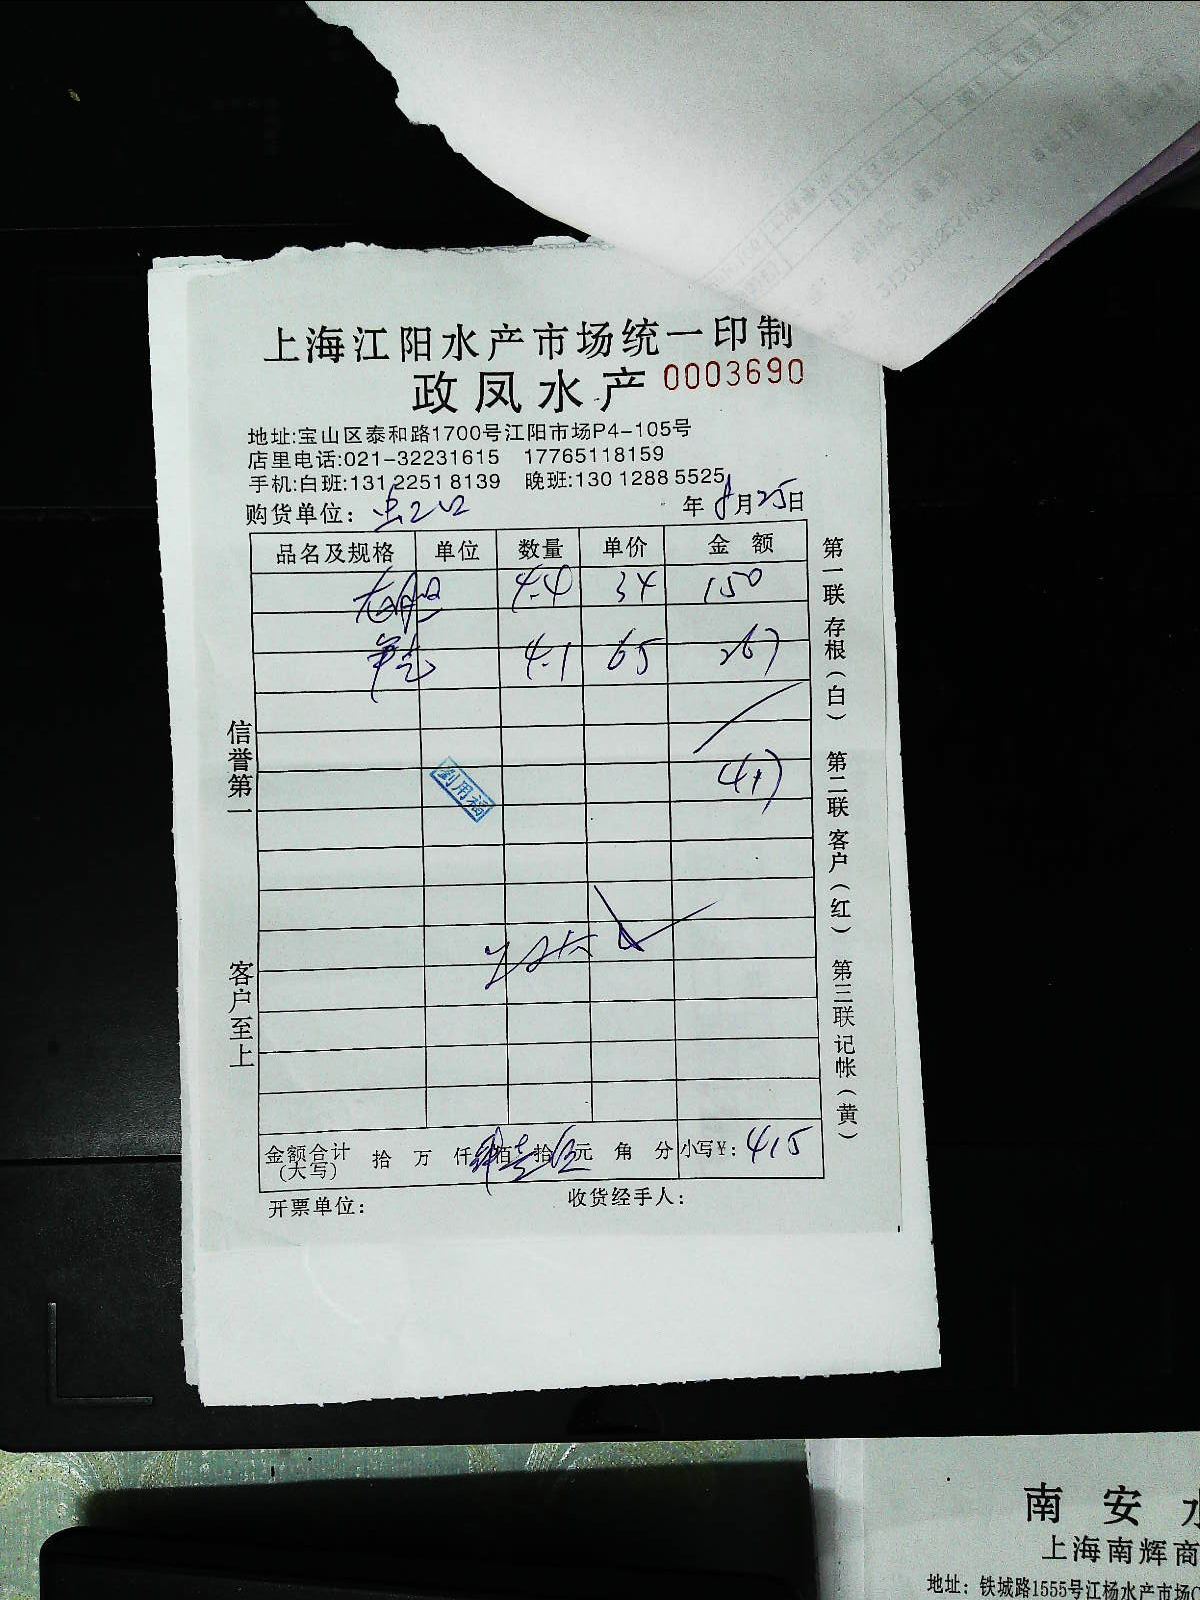 上海江阳水产市场统一印制
政凤水产 0003690
地址:宝山区泰和路1700号江阳市场P4-105号
店里电话:021-32231615 17765118159
手机:白班:131 2251 8139 晚班:130 1288 5525
购货单位:
年8月25日
品名及规格 单位 数量 单价 金额
4.4 34 150
4.1 65 267
417
刘用福
信誉第一
客户至上
第一联存根(白)
第二联客户(红)
第三联记帐(黄)
金额合计(大写) 拾 万 仟 佰 拾 元 角 分 小写¥: 415
开票单位: 收货经手人:
南安水
上海南辉商
地址: 铁城路1555号江杨水产市场